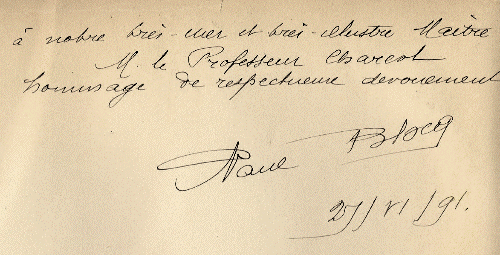 à notre très-cher et très-illustre Maître
M. le Professeur Charcot
hommage de respectueux dévouement
Paul Blocq
27/VI/91.